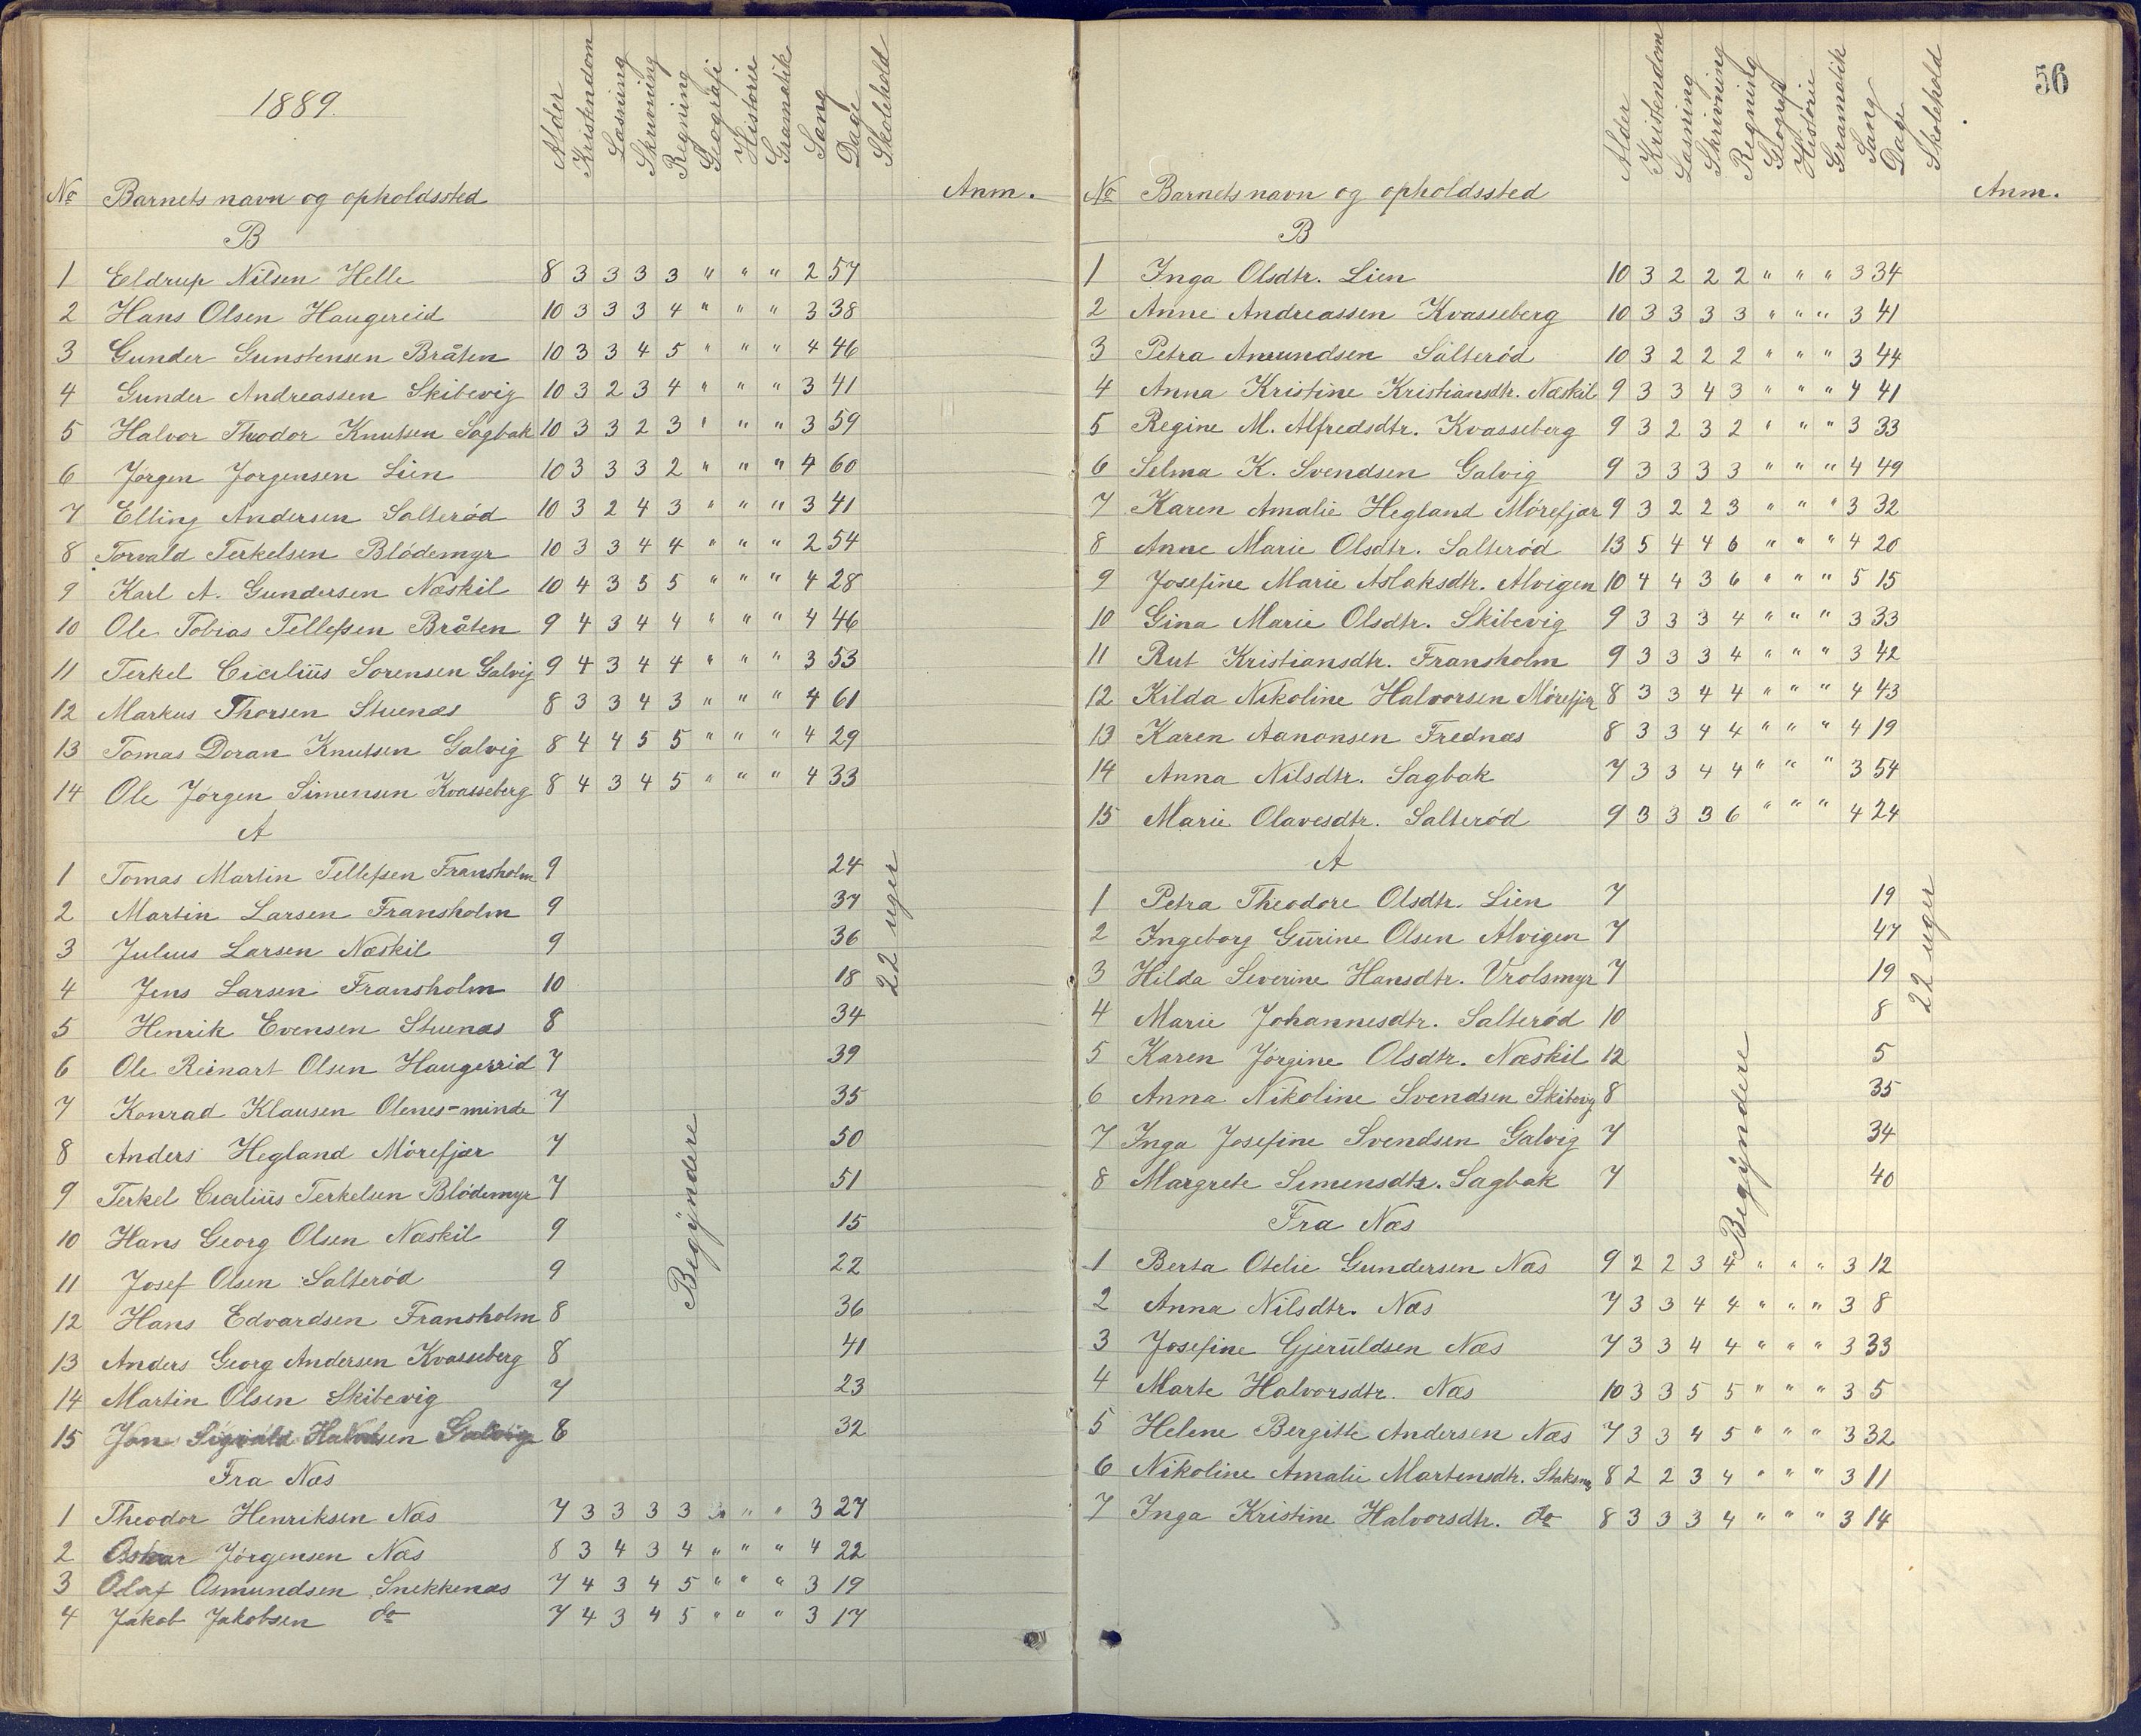 1889.
Alder Kristendom Læsning Skrivning Regning Geografi Historie Gramatik Sang Dage Skolehold
No Barnets navn og opholdssted Anm.
B
1 Eldrup Nilsen Helle 8 3 3 3 3 " " " 2 57
2 Hans Olsen Haugereid 10 3 3 3 4 " " " 3 38
3 Gunder Gunstensen Bråten 10 3 3 4 5 " " " 4 46
4 Gunder Andreassen Skibevig 10 3 2 3 4 " " " 3 41
5 Halvor Theodor Knutsen Sagbak 10 3 3 2 3 " " " 3 59
6 Jørgen Jørgensen Lien 10 3 3 3 2 " " " 4 60
7 Elling Andersen Salterød 10 3 2 4 3 " " " 3 41
8 Torvald Terkelsen Blødemyr 10 3 3 4 4 " " " 2 54
9 Karl A. Gundersen Næskil 10 4 3 5 5 " " " 4 28
10 Ole Tobias Tellefsen Bråten 9 4 3 4 4 " " " 4 46
11 Terkel Ciciliüs Sørensen Galvig 9 4 3 4 4 " " " 3 53
12 Markus Thorsen Stuenæs 8 3 3 4 3 " " " 4 61
13 Tomas Doran Knutsen Galvig 8 4 4 5 5 " " " 4 29
14 Ole Jørgen Simensen Kvasseberg 8 4 3 4 5 " " " 4 33
A
1 Tomas Martin Tellefsen Fransholm 9 24
2 Martin Larsen Fransholm 9 37
3 Julius Larsen Næskil 9 36
4 Jens Larsen Fransholm 10 18
22 uger
5 Henrik Evensen Stuenæs 8 34
6 Ole Reinart Olsen Haugereid 7 39
7 Konrad Klausen Olenes=minde 7 35
8 Anders Hegland Mørefjær 7 50
9 Terkel Ciciliüs Terkelsen Blødemyr 7 51
Begÿndere
10 Hans Georg Olsen Næskil 9 15
11 Josef Olsen Salterød 9 22
12 Hans Edvardsen Fransholm 8 36
13 Anders Georg Andersen Kvasseberg 8 41
14 Martin Olsen Skibevig 7 23
15 Sigvald Galvig 8 32
Fra Næs
1 Theodor Henriksen Næs 7 3 3 3 3 " " " 3 27
2 Oskar Jørgensen Næs 8 3 4 3 4 " " " 4 22
3 Olaf Osmundsen Snekkenæs 7 4 3 4 5 " " " 3 19
4 Jakob Jakobsen do 7 4 3 4 5 " " " 3 17
56
Alder Kristendom Læsning Skrivning Regning Geografi Historie Gramatik Sang Dage Skolehold
No Barnets navn og opholdssted Anm.
B
1 Inga Olsdtr. Lien 10 3 2 2 2 " " " 3 34
2 Anne Andreassen Kvasseberg 10 3 3 3 3 " " " 3 41
3 Petra Amundsen Salterød 10 3 2 2 2 " " " 3 44
4 Anna Kristine Kristiansdtr. Næskil 9 3 3 4 3 " " " 4 41
5 Regine M. Alfredsdtr. Kvasseberg 9 3 2 3 2 " " " 3 33
6 Selma K. Svendsen Galvig 9 3 3 3 3 " " " 4 49
7 Karen Amalie Hegland Mørefjær 9 3 2 2 3 " " " 3 32
8 Anne Marie Olsdtr. Salterød 13 5 4 4 6 " " " 4 20
9 Josefine Marie Aslaksdtr. Alvigen 10 4 4 3 6 " " " 5 15
10 Gina Marie Olsdtr. Skibevig 9 3 3 3 4 " " " 3 33
11 Rut Kristiansdtr. Fransholm 9 3 3 3 4 " " " 3 42
12 Kilda Nikoline Halvorsen Mørefjær 8 3 3 4 4 " " " 4 43
13 Karen Aanonsen Frednæs 8 3 3 4 4 " " " 4 19
14 Anna Nilsdtr. Sagbak 7 3 3 4 4 " " " 3 54
15 Marie Olavesdtr. Salterød 9 3 3 3 6 " " " 4 24
A
1 Petra Theodore Olsdtr. Lien 7 19
2 Ingeborg Gürine Olsen Alvigen 7 47
3 Hilda Severine Hansdtr. Vrolsmyr 7 19
22 uger
4 Marie Johannesdtr. Salterød 10 8
5 Karen Jørgine Olsdtr. Næskil 12 5
6 Anna Nikoline Svendsen Skibevig 8 35
7 Inga Josefine Svendsen Galvig 7 34
Begÿndere
8 Margrete Simensdtr. Sagbak 7 40
Fra Næs
1 Berta Otelie Gundersen Næs 9 2 2 3 4 " " " 3 12
2 Anna Nilsdtr. Næs 7 3 3 4 4 " " " 3 8
3 Josefine Gjerüldsen Næs 7 3 3 4 4 " " " 3 33
4 Marte Halvorsdtr. Næs 10 3 3 5 5 " " " 3 5
5 Helene Bergitte Andersen Næs 7 3 3 4 5 " " " 3 32
6 Nikoline Amalie Martensdtr. 8 2 2 3 4 " " " 3 11
7 Inga Kristine Halvorsdtr. do 8 3 3 3 4 " " " 3 14